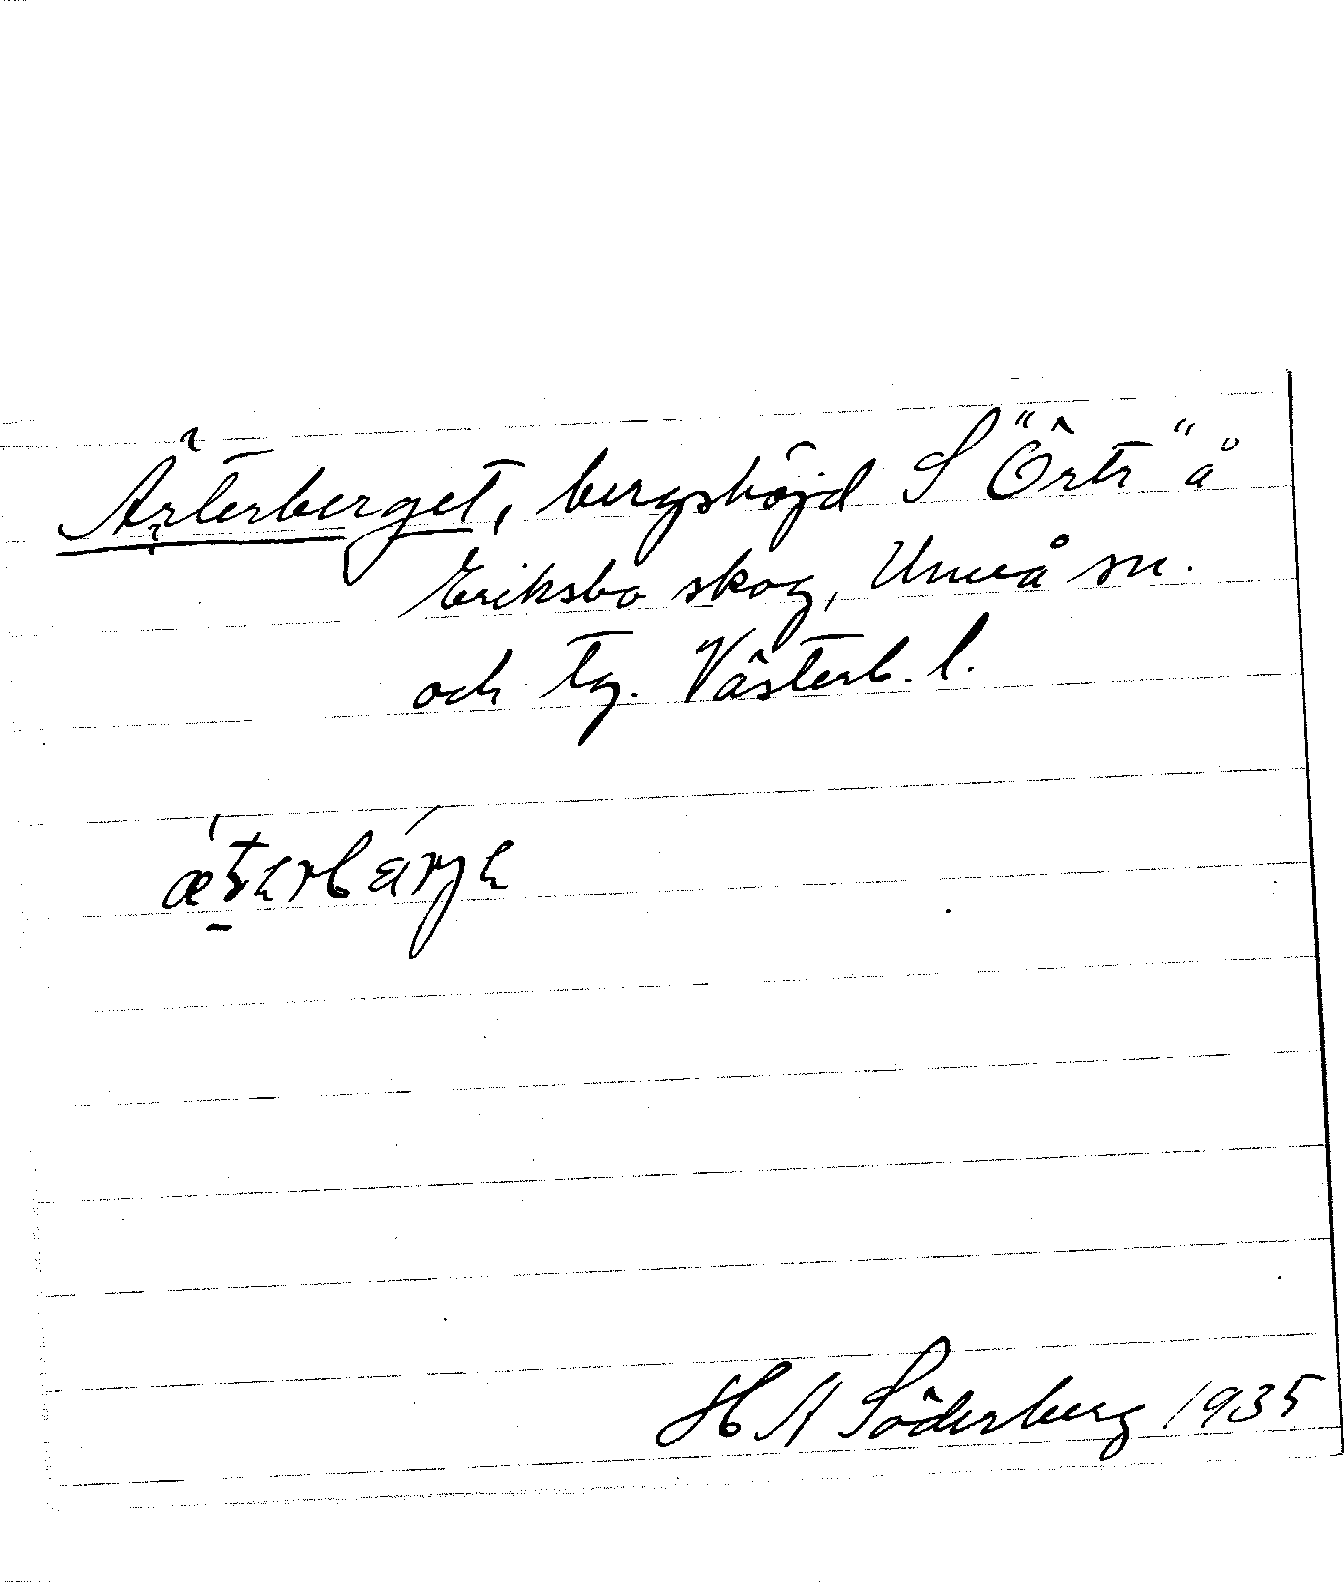 Ärterberget, bergshöjd S "Örtr" å
Eriksbo skog, Umeå sn.
och tg. Västerb. l.
H A Söderberg 1935